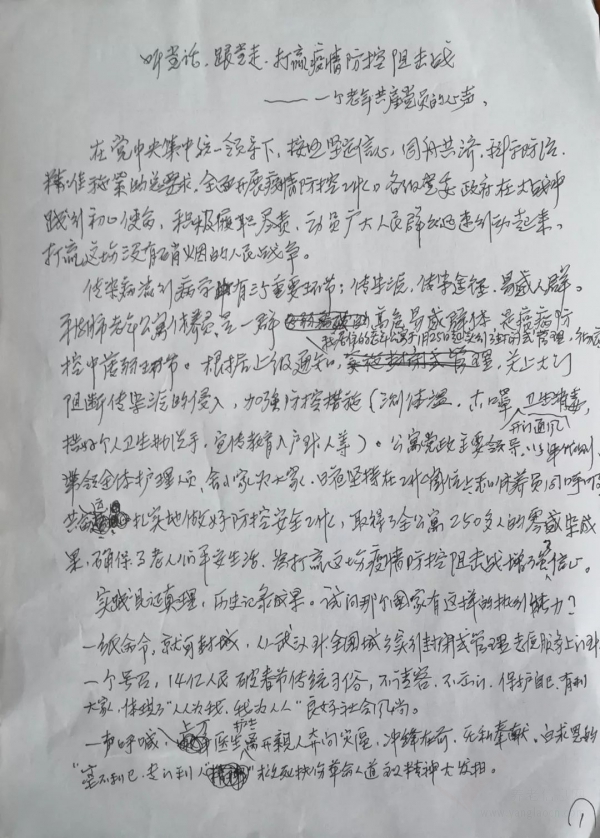 听党话、跟党走、打赢疫情防控阻击战
——一个老年共产党员的心声、
在党中央集中统一领导下，按照坚定信心，同舟共济，科学防治、
精准施策的总要求，全面开展疫情防控工作。各级党委政府在大战中
践行初心使命，积极履职尽责，动员广大人民群众迅速行动起来，
打赢这场没有硝烟的人民战争。
传染病流行病学中有三个重要环节：传染源，传染途径，易感人群。
老年公寓休养员是一群高危易感群体，是疫病防
控中薄弱环节。根据上级通知，管理，关上大门
阻断传染源的侵入，加强防控措施（测体温，戴口罩，卫生消毒，
开门通风
搞好个人卫生勤洗手，宣传教育入户到人等）。公寓党政主要领导，以身作则，
带领全体护理人员，舍小家为大家，日夜坚持在工作岗位上和休养员同呼吸
共命运扎实地做好防控安全工作，取得了全公寓250多人的零感染成
果，确保了老人们平安生活，为打赢这场疫情防控阻击战增强信心。
实践见证真理，历史记录成果。试问那个国家有这样的执行能力？
一纸命令，就可封城，从武汉到全国城乡实行封闭式管理
一个号召，14亿人民破春节传统习俗，不请客、不出门、保护自己、有利
大家，体现了“人人为我，我为人人”良好社会风尚。
一声呼喊，上万医生护士离开亲人奔向灾区，冲锋在前、无私奉献、白求恩的
“毫不利己、专门利人”救死扶伤革命人道主义精神大发扬。
1